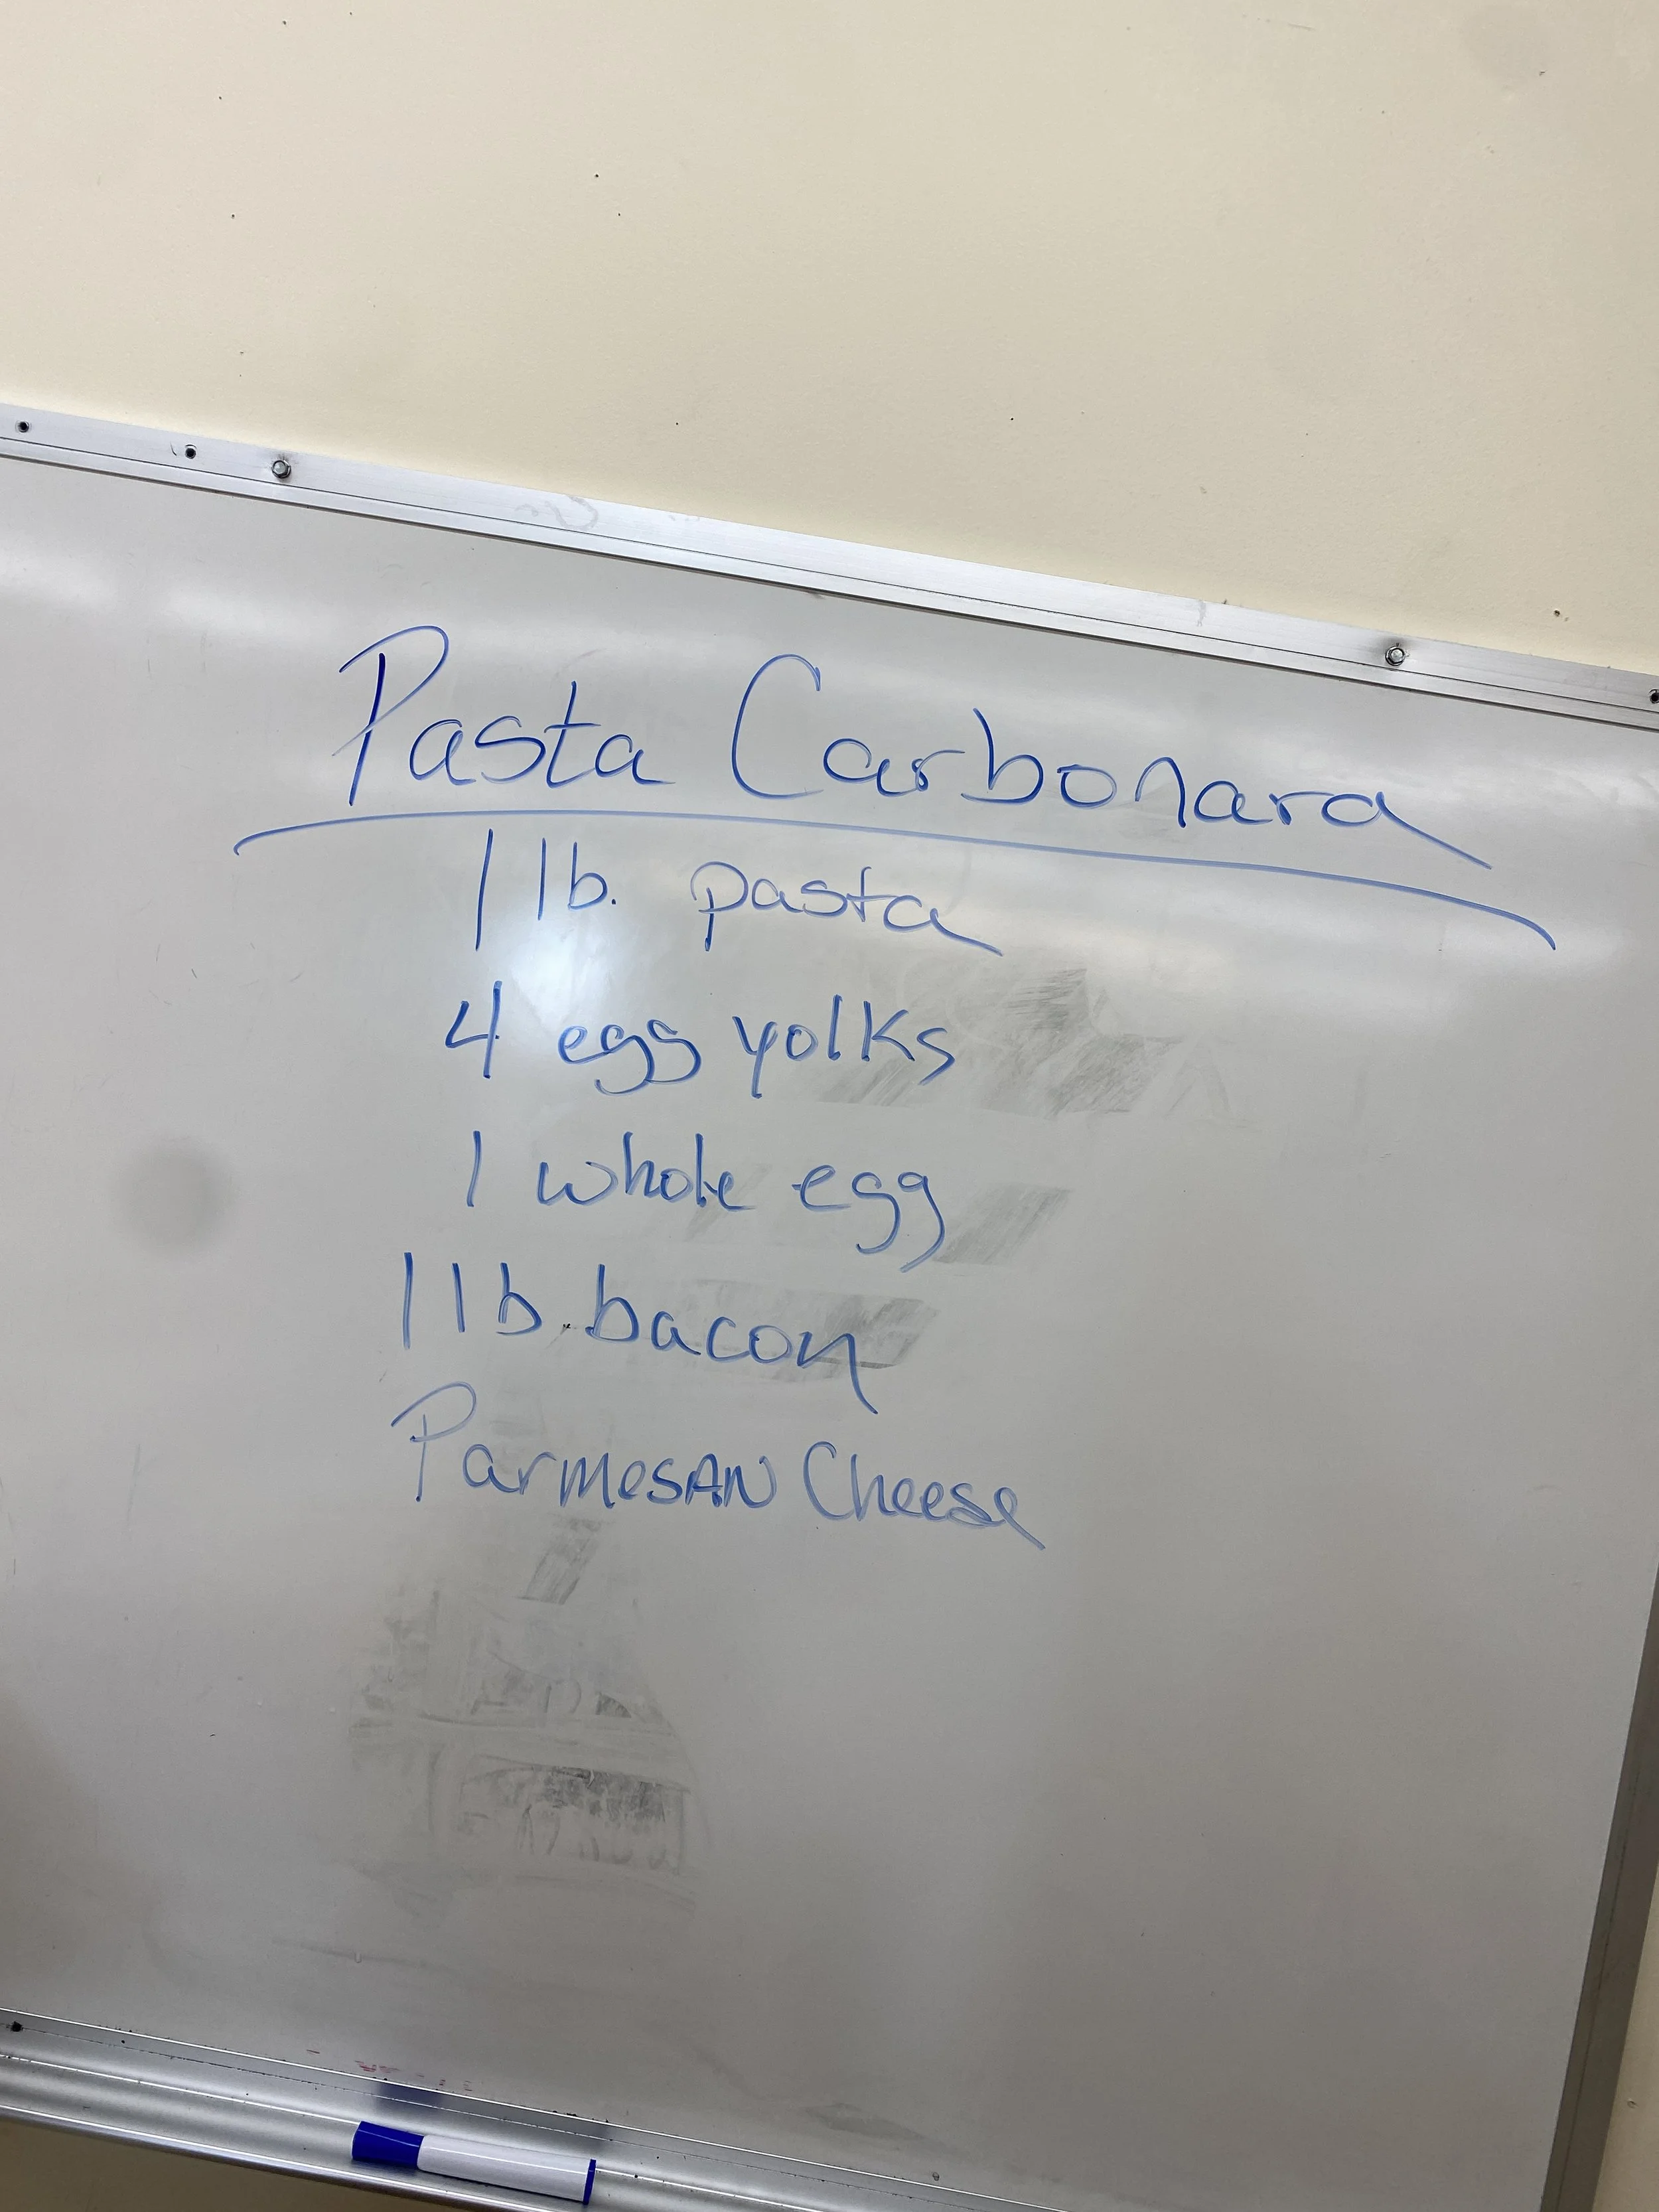 Pasta Carbonara
1 lb. pasta
4 egg yolks
1 whole egg
1 lb. bacon
Parmesan Cheese